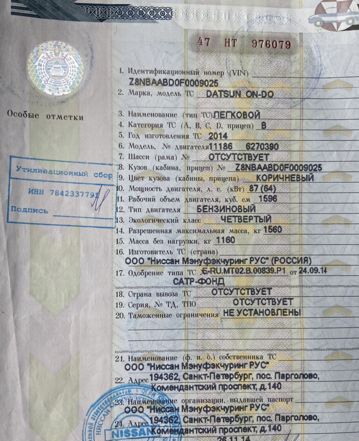 47 НТ 976079
1. Идентификационный номер (VIN)
Z8NBAABD0F0009025
2. Марка, модель ТС DATSUN ON-DO
Особые отметки
3. Наименование (тип ТС) ЛЕГКОВОЙ
4. Категория ТС (A, B, C, D, прицеп) B
5. Год изготовления ТС 2014
6. Модель, № двигателя 11186 6270390
7. Шасси (рама) № ОТСУТСТВУЕТ
8. Кузов (кабина, прицеп) № Z8NBAABD0F0009025
9. Цвет кузова (кабины, прицепа) КОРИЧНЕВЫЙ
10. Мощность двигателя, л. с. (кВт) 87 (64)
11. Рабочий объем двигателя, куб. см 1596
12. Тип двигателя БЕНЗИНОВЫЙ
13. Экологический класс ЧЕТВЕРТЫЙ
14. Разрешенная максимальная масса, кг 1560
15. Масса без нагрузки, кг 1160
16. Изготовитель ТС (страна)
ООО "Ниссан Мэнуфэкчуринг РУС" (РОССИЯ)
17. Одобрение типа ТС E-RU.MT02.B.00839.P1 от 24.09.14
САТР-ФОНД
18. Страна вывоза ТС ОТСУТСТВУЕТ
19. Серия, № ТД, ТПО ОТСУТСТВУЕТ
20. Таможенные ограничения НЕ УСТАНОВЛЕНЫ
Утилизационный сбор
ИНН 7842337791
Подпись
21. Наименование (ф. и. о.) собственника ТС
ООО "Ниссан Мэнуфэкчуринг РУС"
22. Адрес 194362, Санкт-Петербург, пос. Парголово,
Комендантский проспект, д.140
23. Наименование организации, выдавшей паспорт
ООО "Ниссан Мэнуфэкчуринг РУС"
24. Адрес 194362, Санкт-Петербург, пос. Парголово,
Комендантский проспект, д.140
26.11.14
NISSAN